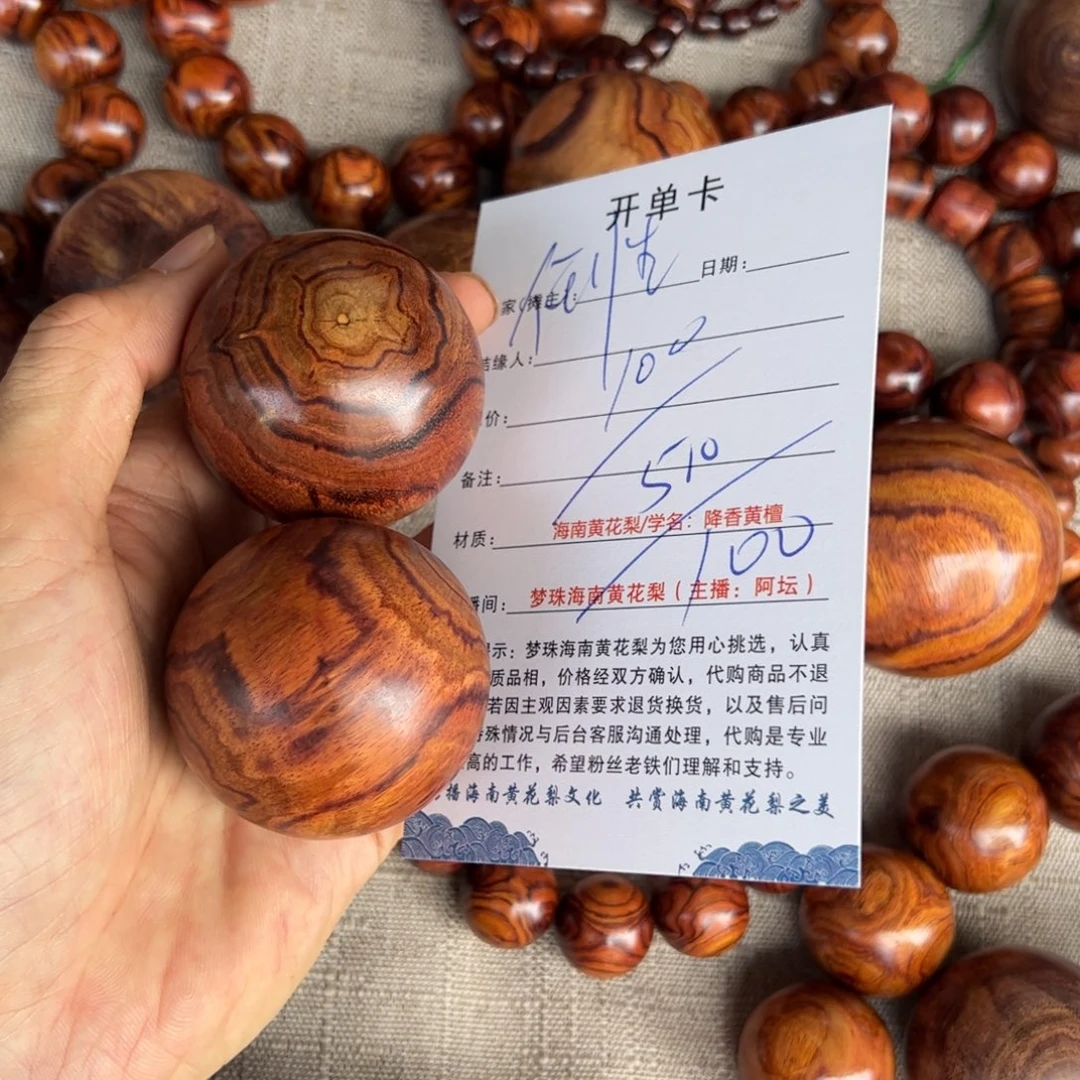 开单卡
家/摊主: 日期:
结缘人:
100
价:
备注:
510
材质: 海南黄花梨/学名：降香黄檀
100
播间: 梦珠海南黄花梨（主播：阿坛）
示：梦珠海南黄花梨为您用心挑选，认真
质品相，价格经双方确认，代购商品不退
若因主观因素要求退货换货，以及售后问
特殊情况与后台客服沟通处理，代购是专业
高的工作，希望粉丝老铁们理解和支持。
播海南黄花梨文化 共赏海南黄花梨之美